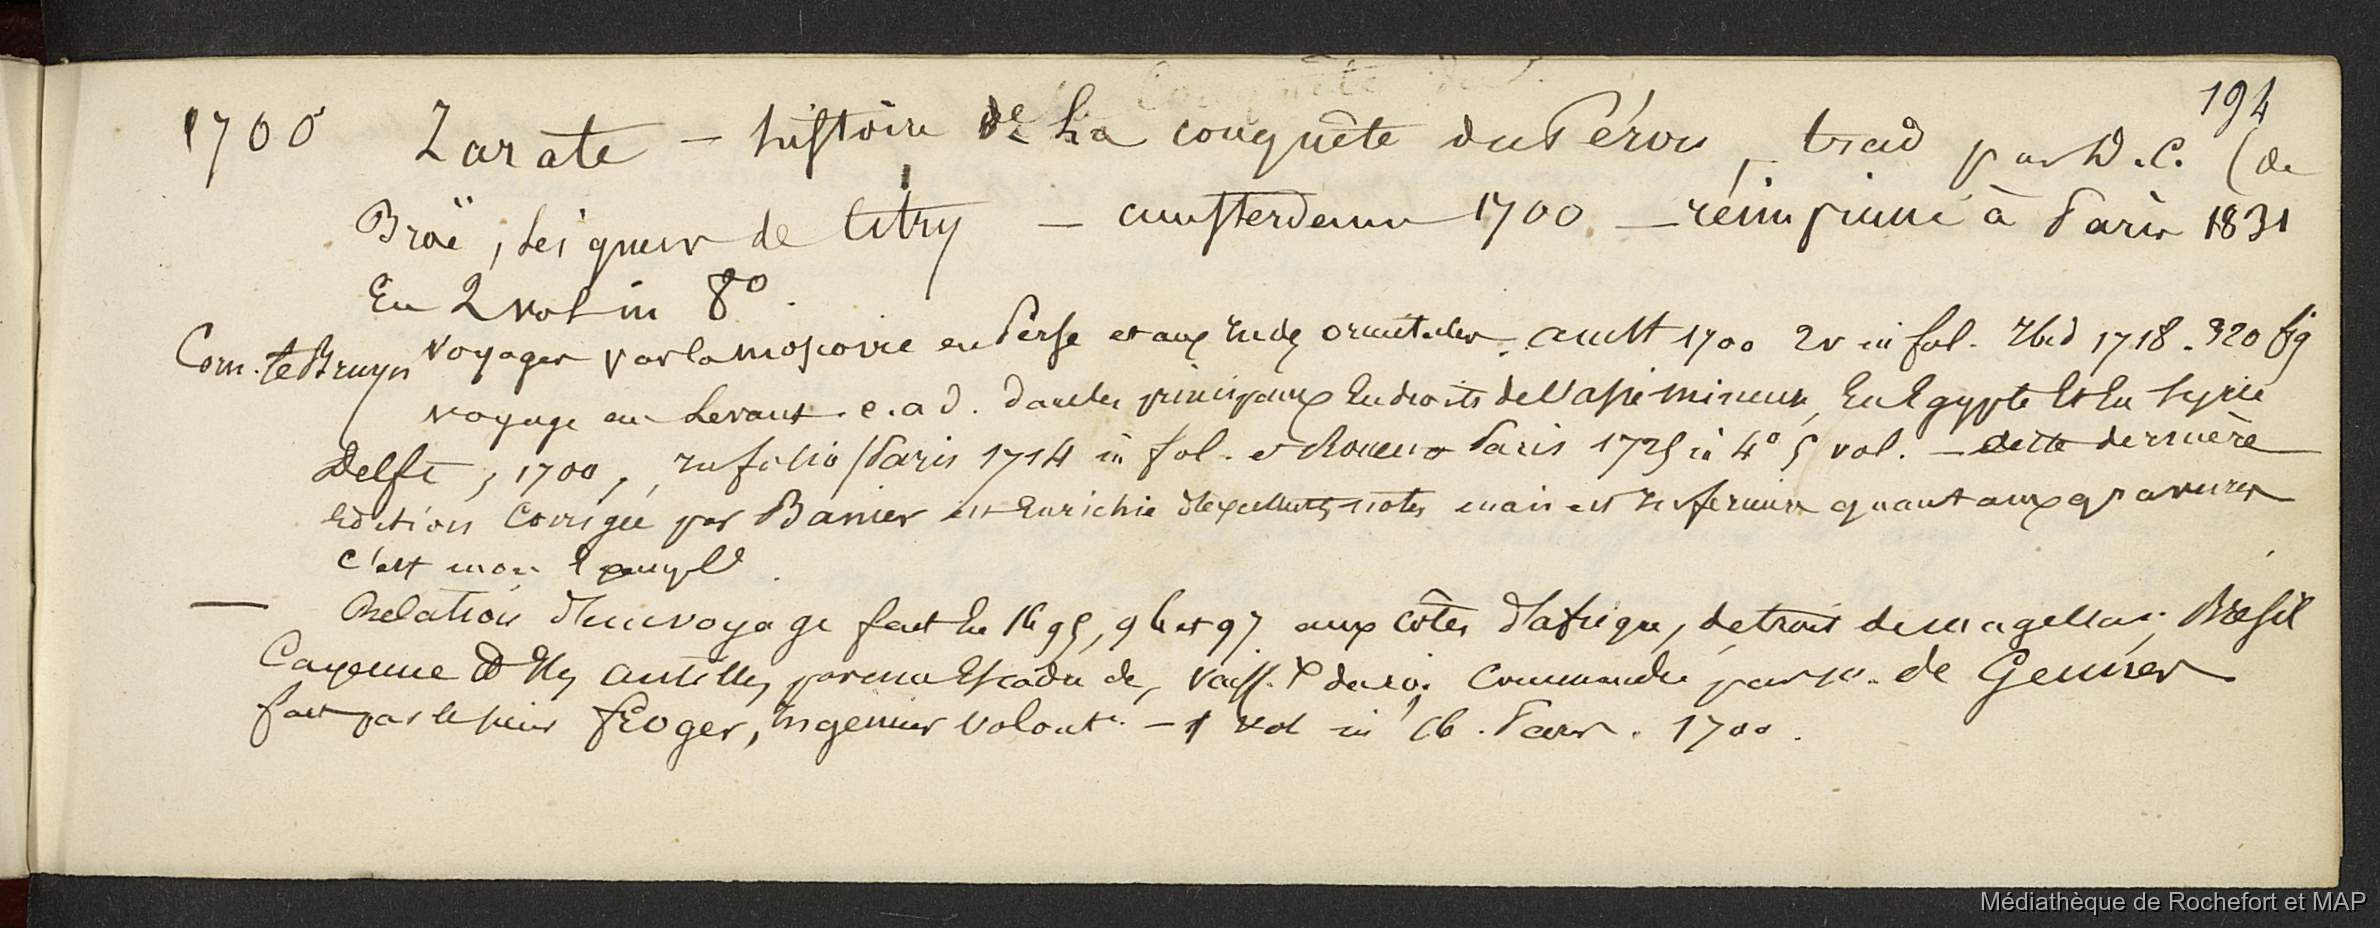 194
1700 Zarate – histoire de la conquête du Pérou, trad par D.C. (de
Broë, seigneur de Citry – amsterdam 1700 – réimprimé à Paris 1831
En 2 vol in 8°.
Corn. le Bruyn voyages par la moscovie en Perse et aux Indes orientales. amst 1700 2 v in fol. Ibid 1718. 320 fig
voyage au Levant. c.a d. dans les principaux Endroits de l'asie mineure, En Egypte Et En Syrie
Delft, 1700, In folio / Paris 1714 in fol. et Rouen Paris 1725 in 4° 5 vol. – cette dernière
Edition Corrigée par Banier est Enrichie d'excellentes notes mais est Inferieure quant aux gravures
c'est mon Exempl.
— Relation d'un voyage fait En 1695, 96 et 97 aux côtes d'afrique, detroit de magellan, Bresil
Cayenne & Isles antilles, par une Escadre de vaiss.x du roi Commandée par M. de Gennes
fait par le sieur froger, Ingenieur volont. – 1 vol in 16. Paris. 1700.
Médiathèque de Rochefort et MAP